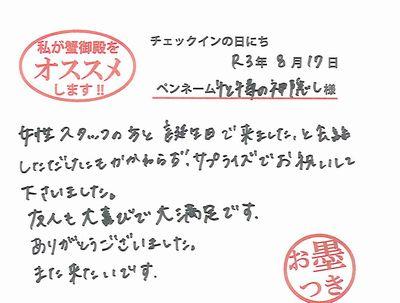 私が蟹御殿を
オススメ
します!!
チェックインの日にち
R3年 8月17日
ペンネーム の神隠し様
女性スタッフの方と誕生日で来ました、と会話
しただけにもかかわらず、サプライズでお祝いして
下さいました。
友人も大喜びで大満足です。
ありがとうございました。
また来たいです。
お墨
つき